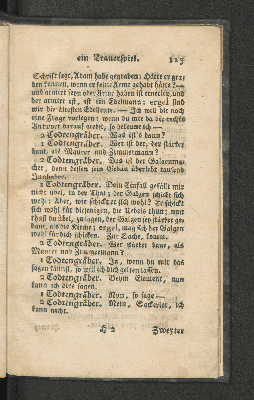 ein Trauerspiel. 115
Schrift sagt, Adam habe gegraben: Hätte er gra-
ben können, wenn er keine Arme gehabt hätte? —
und armirt seyn oder Arme haben ist einerley, und
der armirt ist, ist ein Edelmann: ergel sind
wir die ältesten Edelleute. — Ich will dir noch
eine Frage vorlegen: wenn du mir da die rechte
Antwort darauf giebst, so bekenne ich —
2 Todtengräber. Was ist's dann?
1 Todtengräber. Wer ist der, der stärker
baut, als Maurer und Zimmermann?
2 Todtengräber. Das ist der Galgenma-
cher, denn dessen sein Gebäu überlebt tausend
Innhaber.
1 Todtengräber. Dein Einfall gefällt mir
nicht übel, in der That; der Galgen schickt sich
wohl: Aber, wie schickt er sich wohl? Er schickt
sich wohl für diejenigen, die Uebels thun; nun
thust du übel, zu sagen, der Galgen sey stärker ge-
baut, als die Kirche; ergel, mag sich der Galgen
wohl für dich schicken. Zur Sache, komm.
2 Todtengräber. Wer stärker baut, als
Maurer und Zimmermann?
1 Todtengräber. Ja, wenn du mir das
sagen kannst, so will ich dich gelten lassen.
2 Todtengräber. Beym Element, nun
kann ich dirs sagen.
1 Todtengräber. Nun, so sage —
2 Todtengräber. Nein, Sackerlot, ich
kann nicht.
H 2 Zweyter